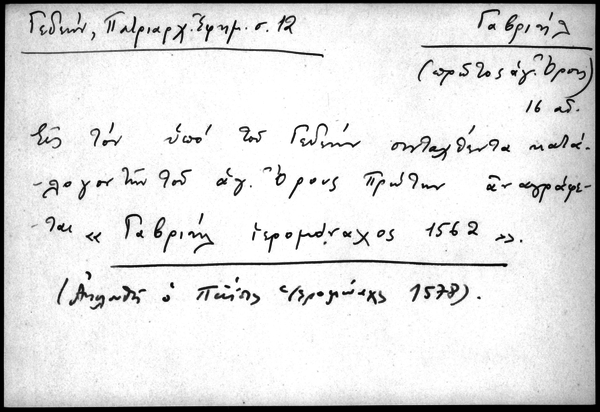 Γεδεών, Πατριαρχ. Ἐφημ. σ. 12
Γαβριήλ
(πρῶτος ἁγ. Ὄρους)
16 αἰ.
Εἰς τόν ὑπό τοῦ Γεδεών συνταχθέντα κατά-
-λογον τῶν τοῦ ἁγ. Ὄρους Πρώτων ἀναγράφε-
-ται « Γαβριήλ ἱερομόναχος 1562 ».
ὁ ἱερομόναχος 1578).